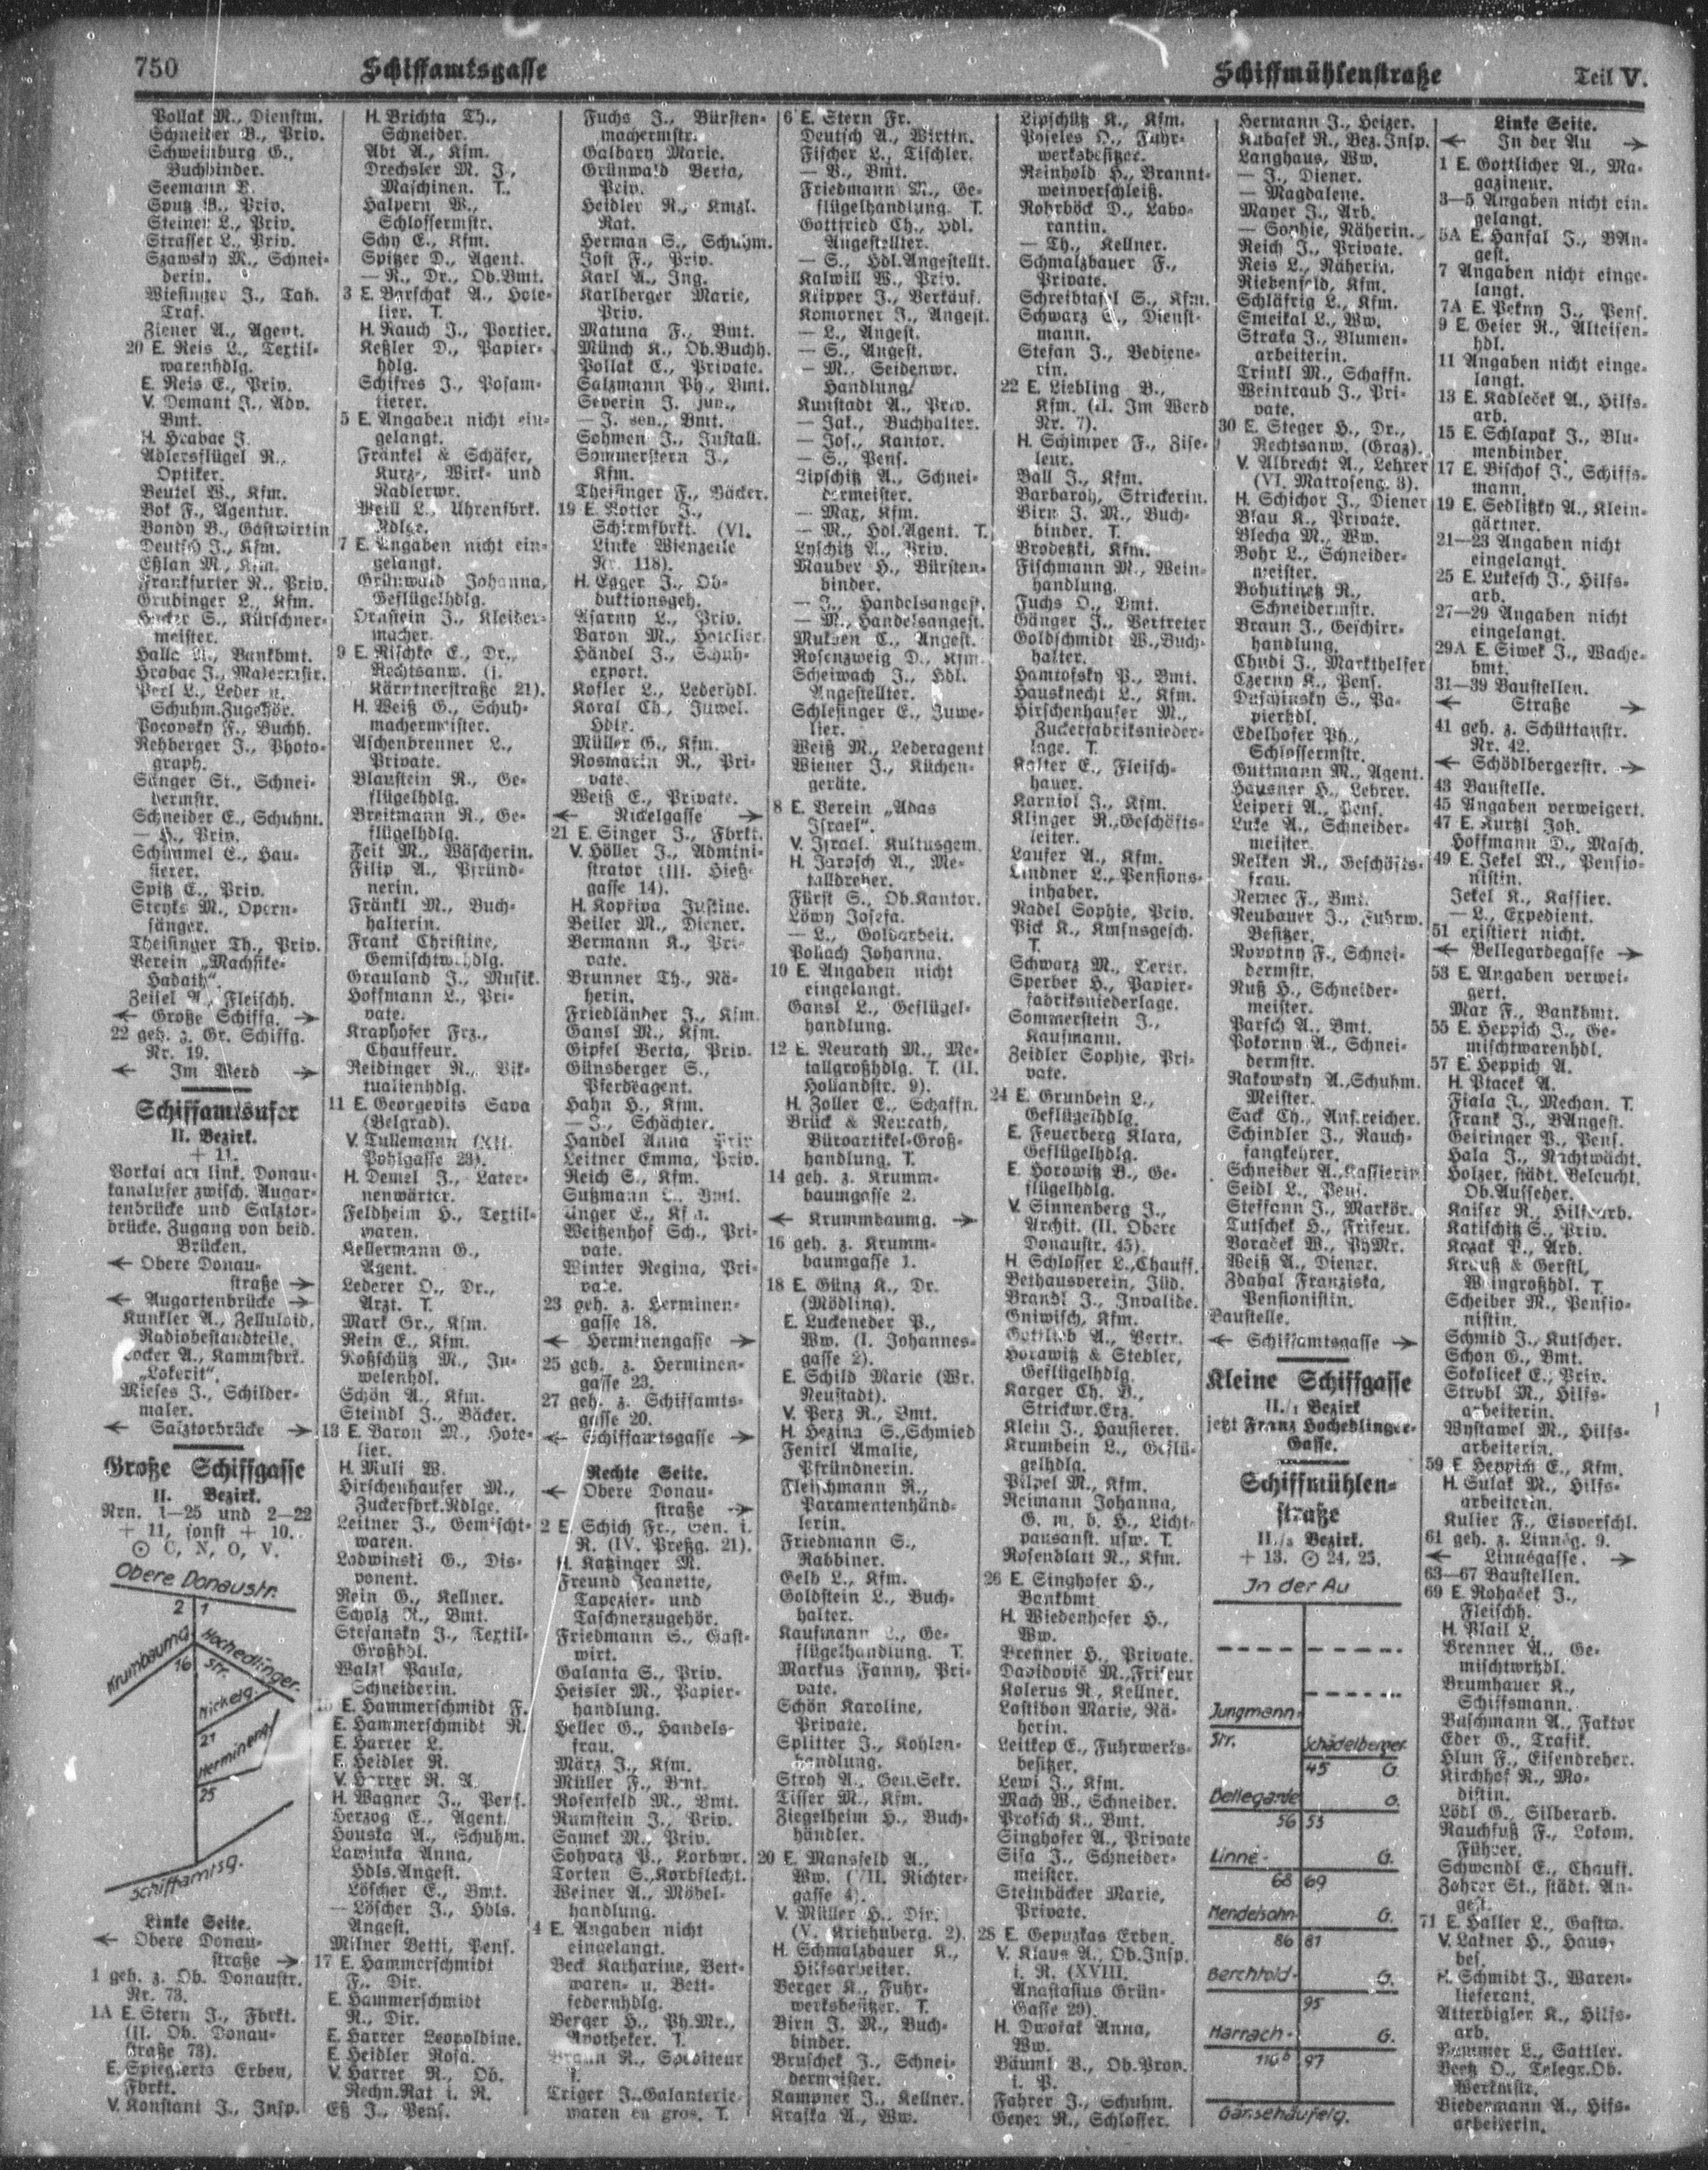 750
Schiffamtsgasse
Schiffmühlenstraße
Teil V.
Pollak M., Dienstm.
Schneider B., Priv.
Schweinburg G.,
Buchbinder.
Seemann
Sputz B., Priv.
Steiner L., Priv.
Strasser L., Priv.
Szawsky M., Schnei-
derin.
Wiesinger J., Tab.
Traf.
Ziener A., Agent.
20 E. Reis L., Textil-
warenhdlg.
E. Reis E., Priv.
V. Demant J., Adv.
Bmt.
H. Hrabac J.
Adlersflügel R.,
Optiker.
Beutel W., Kfm.
Bok F., Agentur.
Bondy B., Gastwirtin
Deutsch J., Kfm.
Eßlan M., Kfm.
Frankfurter R., Priv.
Grubinger L., Kfm.
Hacker S., Kürschner-
meister.
Halla, Bankbmt.
Hrabac J., Malermstr.
Perl L., Leder u.
Schuhm.Zugehör.
Pocovsky F., Buchh.
Rehberger J., Photo-
graph.
Sänger St., Schnei-
dermstr.
Schneider E., Schuhm.
— H., Priv.
Schimmel E., Hau-
sierer.
Spitz E., Priv.
Stryks M., Opern-
sänger.
Theisinger Th., Priv.
Verein „Machsike-
Hadath".
Zeisel A., Fleischh.
← Große Schiffg. →
22 geh. z. Gr. Schiffg.
Nr. 19.
← Im Werd →
Schiffamtsufer
II. Bezirk.
+ 11.
Vorkai am link. Donau-
kanalufer zwisch. Augar-
tenbrücke und Salztor-
brücke. Zugang von beid.
Brücken.
← Obere Donau-
straße →
← Augartenbrücke →
Kunkler A., Zelluloid,
Radiobestandteile.
Locker A., Kammfbrt.
„Lokerit".
Mieses J., Schilder-
maler.
← Salztorbrücke →
Große Schiffgasse
II. Bezirk.
Nrn. 1—25 und 2—22
+ 11, sonst + 10.
⊙ C, N, O, V.
Obere Donaustr.
2 1
Krumbaumg.
16
Hochedlinger-
str.
Nickelg.
21
Herminengs.
25
Schiffamtsg.
Linke Seite.
← Obere Donau-
straße →
1 geh. z. Ob. Donaustr.
Nr. 73.
1A E. Stern J., Fbrkt.
(II. Ob. Donau-
straße 73).
E. Spieglerts Erben,
Fbrkt.
V. Konstant J., Insp.
H. Brichta Th.,
Schneider.
Abt A., Kfm.
Drechsler M. J.,
Maschinen. T.
Halpern W.,
Schlossermstr.
Schy E., Kfm.
Spitzer D., Agent.
— R., Dr., Ob.Bmt.
3 E. Barschak A., Hote-
lier. T.
H. Rauch J., Portier.
Keßler D., Papier-
hdlg.
Schifres J., Posam-
tierer.
5 E. Angaben nicht ein-
gelangt.
Fränkel & Schäfer,
Kurz-, Wirk- und
Nadlerwr.
Weill L., Uhrenfbrk.
Ndlge.
7 E. Angaben nicht ein-
gelangt.
Grünwald Johanna,
Geflügelhdlg.
Ornstein J., Kleider-
macher.
9 E. Rischko E., Dr.,
Rechtsanw. (I.
Kärntnerstraße 21).
H. Weiß G., Schuh-
machermeister.
Aschenbrenner L.,
Private.
Blaustein R., Ge-
flügelhdlg.
Breitmann R., Ge-
flügelhdlg.
Feit M., Wäscherin.
Filip A., Pfründ-
nerin.
Fränkl M., Buch-
halterin.
Frank Christine,
Gemischtwhdlg.
Grauland J., Musik.
Hoffmann L., Pri-
vate.
Kraphofer Frz.,
Chauffeur.
Reidinger R., Vik-
tualienhdlg.
11 E. Georgevits Sava
(Belgrad).
V. Tullemann (XII.
Pohlgasse 23).
H. Demel J., Later-
nenwärter.
Feldheim H., Textil-
waren.
Kellermann G.,
Agent.
Lederer O., Dr.,
Arzt. T.
Mark Gr., Kfm.
Rein E., Kfm.
Roßschütz M., Ju-
welenhdl.
Schön A., Kfm.
Steindl J., Bäcker.
13 E. Baron M., Hote-
lier.
H. Muli W.
Hirschenhauser M.,
Zuckerfbrk.Ndlge.
Leitner J., Gemischt-
waren.
Lodwinski G., Dis-
ponent.
Rein G., Kellner.
Scholz R., Bmt.
Stefansky J., Textil-
Großhdl.
Walzl Paula,
Schneiderin.
15 E. Hammerschmidt F.
E. Hammerschmidt R.
E. Harrer L.
E. Heidler R.
V. Harrer R. A.
H. Wagner J., Pens.
Herzog E., Agent.
Houska A., Schuhm.
Lawinka Anna,
Hdls.Angest.
Löscher E., Bmt.
— Löscher J., Hdls.
Angest.
Milner Betti, Pens.
17 E. Hammerschmidt
F., Dir.
E. Hammerschmidt
R., Dir.
E. Harrer Leopoldine.
E. Heidler Rosa.
V. Harrer R., Ob.
Rechn.Rat i. R.
Eß J., Pens.
Fuchs J., Bürsten-
machermstr.
Galdary Marie.
Grünwald Berta,
Priv.
Heidler R., Kmzl.
Rat.
Herman S., Schuhm.
Jost F., Priv.
Karl A., Ing.
Karlberger Marie,
Priv.
Matuna F., Bmt.
Münch K., Ob.Buchh.
Pollak E., Private.
Salzmann Ph., Bmt.
Severin J. jun.,
— J. sen., Bmt.
Sohmen J., Install.
Sommerstern J.,
Kfm.
Theisinger F., Bäcker.
19 E. Rotter J.,
Schirmfbrkt. (VI.
Linke Wienzeile
Nr. 118).
H. Egger J., Ob-
duktionsgeh.
Asarny L., Priv.
Baron M., Hotelier.
Händel J., Schuh-
export.
Kofler L., Lederhdl.
Koral Ch., Juwel.
Hdlr.
Müller G., Kfm.
Rosmarin R., Pri-
vate.
Weiß E., Private.
← Nickelgasse →
21 E. Singer J., Fbrkt.
V. Höller J., Admini-
strator (III. Hieß-
gasse 14).
H. Kopriva Justine.
Beiler M., Diener.
Bermann K., Pri-
vate.
Brunner Th., Nä-
herin.
Friedländer J., Kfm.
Gansl M., Kfm.
Gipfel Berta, Priv.
Günsberger S.,
Pferdeagent.
Hahn H., Kfm.
— J., Schächter.
Handel Anna Priv.
Leitner Emma, Priv.
Reich S., Kfm.
Sußmann L., Bmt.
Unger E., Kfm.
Weißenhof Sch., Pri-
vate.
Winter Regina, Pri-
vate.
23 geh. z. Herminen-
gasse 18.
← Herminengasse →
25 geh. z. Herminen-
gasse 23.
27 geh. z. Schiffamts-
gasse 20.
← Schiffamtsgasse →
Rechte Seite.
← Obere Donau-
straße →
2 E. Schich Fr., Gen. i.
R. (IV. Preßg. 21).
H. Katzinger M.
Freund Jeanette,
Tapezier- und
Taschnerzugehör.
Friedmann S., Gast-
wirt.
Galanta S., Priv.
Heisler M., Papier-
handlung.
Heller G., Handels-
frau.
März J., Kfm.
Müller F., Bmt.
Rosenfeld M., Bmt.
Rumstein J., Priv.
Samek M., Priv.
Sohvarz P., Korbwr.
Torten S., Korbflecht.
Weiner A., Möbel-
handlung.
4 E. Angaben nicht
eingelangt.
Beck Katharine, Bett-
waren- u. Bett-
federnhdlg.
Berger H., Ph.Mr.,
Apotheker. T.
Braun R., Spediteur
Triger J., Galanterie-
waren en gros. T.
6 E. Stern Fr.
Deutsch A., Wirtin.
Fischer L., Tischler.
— B., Bmt.
Friedmann M., Ge-
flügelhandlung. T.
Gottfried Ch., Hdl.
Angestellter.
— S., Hdl.Angestellt.
Kalwill W., Priv.
Klipper J., Verkäuf.
Komorner J., Angest.
— L., Angest.
— S., Angest.
— M., Seidenwr.
Handlung.
Kunstadt A., Priv.
— Jak., Buchhalter.
— Jos., Kantor.
— S., Pens.
Lipschitz A., Schnei-
dermeister.
— Max, Kfm.
— M., Hdl.Agent. T.
Lyschitz A., Priv.
Mauber H., Bürsten-
binder.
— J., Handelsangest.
— M., Handelsangest.
Mulsen C., Angest.
Rosenzweig D., Kfm.
Scheiwach J., Hdl.
Angestellter.
Schlesinger E., Juwe-
lier.
Weiß M., Lederagent
Wiener J., Küchen-
geräte.
8 E. Verein „Adas
Israel".
V. Israel. Kultusgem.
H. Jarosch A., Me-
talldreher.
Fürst S., Ob.Kantor.
Löwy Josefa.
— L., Goldarbeit.
Pollach Johanna.
10 E. Angaben nicht
eingelangt.
Gansl L., Geflügel-
handlung.
12 E. Neurath M., Me-
tallgroßhdlg. T. (II.
Hollandstr. 9).
H. Zoller E., Schaffn.
Brück & Neurath,
Büroartikel-Groß-
handlung. T.
14 geh. z. Krumm-
baumgasse 2.
← Krummbaumg. →
16 geh. z. Krumm-
baumgasse 1.
18 E. Günz K., Dr.
(Mödling).
E. Luckeneder P.,
Ww. (I. Johannes-
gasse 2).
E. Schild Marie (Wr.
Neustadt).
V. Perz R., Bmt.
H. Hezina S., Schmied
Fenirl Amalie,
Pfründnerin.
Fleischmann R.,
Paramentenhänd-
lerin.
Friedmann S.,
Rabbiner.
Gelb L., Kfm.
Goldstein L., Buch-
halter.
Kaufmann L., Ge-
flügelhandlung. T.
Markus Fanny, Pri-
vate.
Schön Karoline,
Private.
Splitter J., Kohlen-
handlung.
Stroh A., Gen.Sekr.
Tisser M., Kfm.
Ziegelheim H., Buch-
händler.
20 E. Mansfeld A.,
Ww. (VII. Richter-
gasse 4).
V. Müller H., Dir.
(V. Kriehuberg. 2).
H. Schmalzbauer K.,
Hilfsarbeiter.
Berger K., Fuhr-
werksbesitzer. T.
Birn J. M., Buch-
binder.
Bruschek J., Schnei-
dermeister.
Kampner J., Kellner.
Kraska A., Ww.
Lipschütz K., Kfm.
Pojeles O., Fuhr-
werksbesitzer.
Reinhold H., Brannt-
weinverschleiß.
Rohrböck D., Labo-
rantin.
— Th., Kellner.
Schmalzbauer F.,
Private.
Schreibtafel S., Kfm.
Schwarz, Dienst-
mann.
Stefan J., Bediene-
rin.
22 E. Liebling B.,
Kfm. (II. Im Werd
Nr. 7).
H. Schimper F., Zise-
leur.
Ball J., Kfm.
Barbaroh, Strickerin.
Birn J. M., Buch-
binder. T.
Brodetzki, Kfm.
Fischmann M., Wein-
handlung.
Fuchs O., Bmt.
Gänger J., Vertreter
Goldschmidt W., Buch-
halter.
Hamtofsky P., Bmt.
Hausknecht L., Kfm.
Hirschenhauser M.,
Zuckerfabriksnieder-
lage. T.
Kalter E., Fleisch-
hauer.
Karniol J., Kfm.
Klinger R., Geschäfts-
leiter.
Laufer A., Kfm.
Lindner L., Pensions-
inhaber.
Nadel Sophie, Priv.
Pick K., Kmfnsgesch.
T.
Schwarz M., Vertr.
Sperber H., Papier-
fabriksniederlage.
Sommerstein J.,
Kaufmann.
Zeidler Sophie, Pri-
vate.
24 E. Grunbein L.,
Geflügelhdlg.
E. Feuerberg Klara,
Geflügelhdlg.
E. Horowitz B., Ge-
flügelhdlg.
V. Sinnenberg J.,
Archit. (II. Obere
Donaustr. 45).
H. Schlosser L., Chauff.
Bethausverein, Jüd.
Brandl J., Invalide.
Gniwisch, Kfm.
Gottlieb A., Vertr.
Horawitz & Stebler,
Geflügelhdlg.
Karger Ch. B.,
Strickwr.Erz.
Klein J., Hausierer.
Krumbein L., Geflü-
gelhdlg.
Pilpel M., Kfm.
Reimann Johanna,
G. m. b. H., Licht-
pausanst. usw. T.
Rosenblatt R., Kfm.
26 E. Singhofer H.,
Bankbmt
H. Wiedenhofer H.,
Ww.
Brenner H., Private.
Davidovic M., Friseur
Kolerus R., Kellner.
Lastibon Marie, Nä-
herin.
Leitkep E., Fuhrwerks-
besitzer.
Lewi J., Kfm.
Mach W., Schneider.
Proksch K., Bmt.
Singhofer A., Private
Sisa J., Schneider-
meister.
Steinbäcker Marie,
Private.
28 E. Gepuzkas Erben.
V. Klaus A., Ob.Insp.
i. R. (XVIII.
Anastasius Grün-
Gasse 29).
H. Dwořak Anna,
Ww.
Bäuml B., Ob.Prov.
i. P.
Fahrer J., Schuhm.
Geyer R., Schlosser.
Hermann J., Heizer.
Kubasek R., Bez.Insp.
Langhaus, Ww.
— J., Diener.
— Magdalene.
Mayer J., Arb.
— Sophie, Näherin.
Reich J., Private.
Reis L., Näherin.
Riebenfeld, Kfm.
Schläfrig L., Kfm.
Smeikal L., Ww.
Straka J., Blumen-
arbeiterin.
Trinkl M., Schaffn.
Weintraub J., Pri-
vate.
30 E. Steger H., Dr.,
Rechtsanw. (Graz).
V. Albrecht A., Lehrer
(VI. Matroseng. 3).
H. Schichor J., Diener
Blau K., Private.
Blecha M., Ww.
Bohr L., Schneider-
meister.
Bohutinetz R.,
Schneidermstr.
Braun J., Geschirr-
handlung.
Chudi J., Markthelfer
Czerny K., Pens.
Duschinsky S., Pa-
pierhdl.
Edelhofer Ph.,
Schlossermstr.
Guttmann M., Agent.
Hausner H., Lehrer.
Leipert A., Pens.
Luke A., Schneider-
meister.
Nelken R., Geschäfts-
frau.
Nemec F., Bmt.
Neubauer J., Fuhrw.
Besitzer.
Novotny F., Schnei-
dermstr.
Nuß H., Schneider-
meister.
Parsch A., Bmt.
Pokorny A., Schnei-
dermstr.
Rakowsky A., Schuhm.
Meister.
Sack Ch., Anstreicher.
Schindler J., Rauch-
fangkehrer.
Schneider A., Kassierin
Seidl L., Pens.
Steffann J., Markör.
Tutschek H., Friseur.
Voraček W., PhMr.
Weiß A., Diener.
Zdahal Franziska,
Pensionistin.
Baustelle.
← Schiffamtsgasse →
Kleine Schiffgasse
II./1 Bezirk
jetzt Franz Hochedlinger-
Gasse.
Schiffmühlen-
straße
II./3 Bezirk.
+ 13. ⊙ 24, 25.
In der Au
Jungmann-
Str.
Schädelberger
45 G.
Bellegarde G.
56 53
Linne- G.
68 69
Mendelsohn- G.
86 81
Berchtold- G.
95
Harrach- G.
116b 97
Gänsehäufelg.
Linke Seite.
← In der Au →
1 E. Gottlicher A., Ma-
gazineur.
3—5 Angaben nicht ein-
gelangt.
5A E. Hansal J., BAn-
gest.
7 Angaben nicht einge-
langt.
7A E. Pekny J., Pens.
9 E. Geier R., Alteisen-
hdl.
11 Angaben nicht einge-
langt.
13 E. Kadleček A., Hilfs-
arb.
15 E. Schlapak J., Blu-
menbinder.
17 E. Bischof J., Schiffs-
mann.
19 E. Sedlitzky A., Klein-
gärtner.
21—23 Angaben nicht
eingelangt.
25 E. Lukesch J., Hilfs-
arb.
27—29 Angaben nicht
eingelangt.
29A E. Siwek J., Wache-
bmt.
31—39 Baustellen.
← Straße →
41 geh. z. Schüttaustr.
Nr. 42.
← Schödlbergerstr. →
43 Baustelle.
45 Angaben verweigert.
47 E. Kurtzl Joh.
Hoffmann D., Masch.
49 E. Jekel M., Pensio-
nistin.
Jekel K., Kassier.
— L., Expedient.
51 existiert nicht.
← Bellegardegasse →
53 E. Angaben verwei-
gert.
Mar F., Bankbmt.
55 E. Heppich J., Ge-
mischtwarenhdl.
57 E. Heppich A.
H. Ptacek A.
Fiala J., Mechan. T.
Frank J., BAngest.
Geiringer P., Pens.
Hala J., Nachtwächt.
Holzer, städt. Beleucht.
Ob.Aufseher.
Kaiser R., Hilfsarb.
Katischitz S., Priv.
Kozak P., Arb.
Krauß & Gerstl,
Weingroßhdl. T.
Scheiber M., Pensio-
nistin.
Schmid J., Kutscher.
Schon G., Bmt.
Sokolicek E., Priv.
Strobl M., Hilfs-
arbeiterin.
Wystawel M., Hilfs-
arbeiterin.
59 E. Heppich E., Kfm.
H. Sulak M., Hilfs-
arbeiterin.
Kulier F., Eisverschl.
61 geh. z. Linnég. 9.
← Linnégasse. →
63—67 Baustellen.
69 E. Rohaček J.,
Fleischh.
H. Plail L.
Brenner A., Ge-
mischtwrhdl.
Brumhauer K.,
Schiffsmann.
Buschmann A., Faktor
Eder G., Trafik.
Hlun F., Eisendreher.
Kirchhof R., Mo-
distin.
Lödl G., Silberarb.
Rauchfuß F., Lokom.
Führer.
Schwendl E., Chauff.
Zohrer St., städt. An-
gest.
71 E. Haller L., Gastw.
V. Lakner H., Haus-
bes.
H. Schmidt J., Waren-
lieferant.
Atterbigler K., Hilfs-
arb.
Bammer L., Sattler.
Beetz O., Telegr.Ob.
Werkmstr.
Biedermann A., Hifs-
arbeiterin.